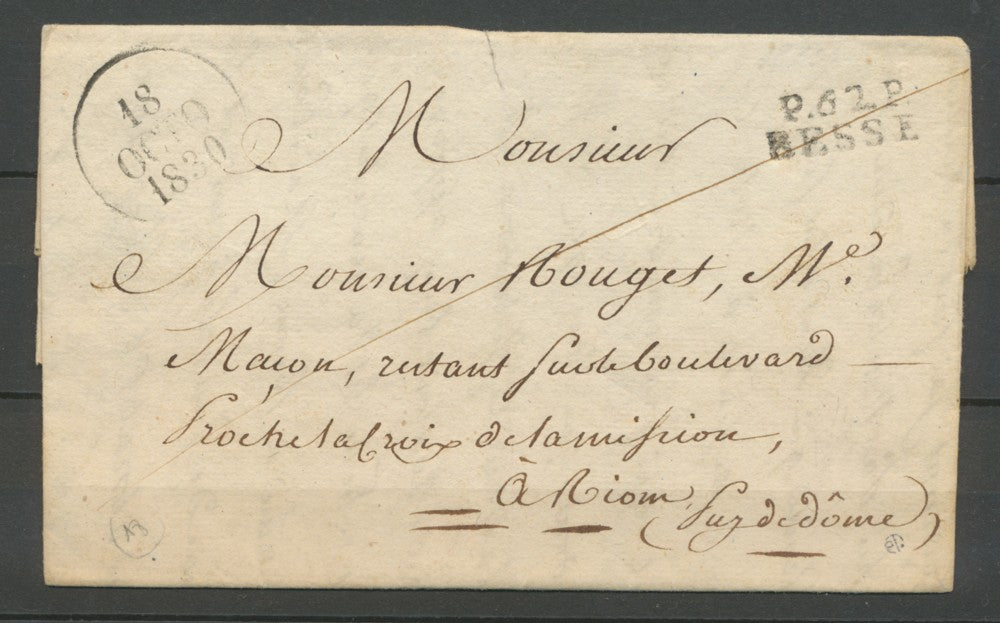 18
OCTO
1830
P.62.P.
BESSE
Monsieur
Monsieur Rouget, Me.
Maçon, restant sur le boulevard
Proche la Croix de la mission,
À Riom,
(Puy de dôme)